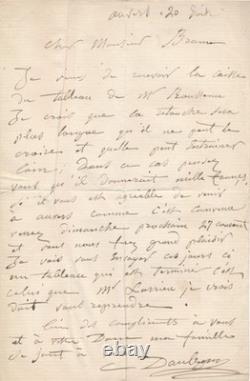 auvers 20 
cher Monsieur Brame
Je viens de recevoir la caisse
du tableau de Mr Rousseau
Je crois que la
plus longue qu'il ne peut le
croire et quelle peut
Dans ce cas pensez
vous qu'il donnerait mille francs,
s'il vous est agréable de venir
à auvers comme c'est convenu
venez dimanche prochain 27 courant
et vous nous ferez grand plaisir
Je vais vous envoyer ces jours ci
un tableau qui est terminé c'est
celui que Mr je crois
doit vous reprendre
bien des compliments à vous
et à votre Dame ma famille
se joint à
Daubigny
© thebu